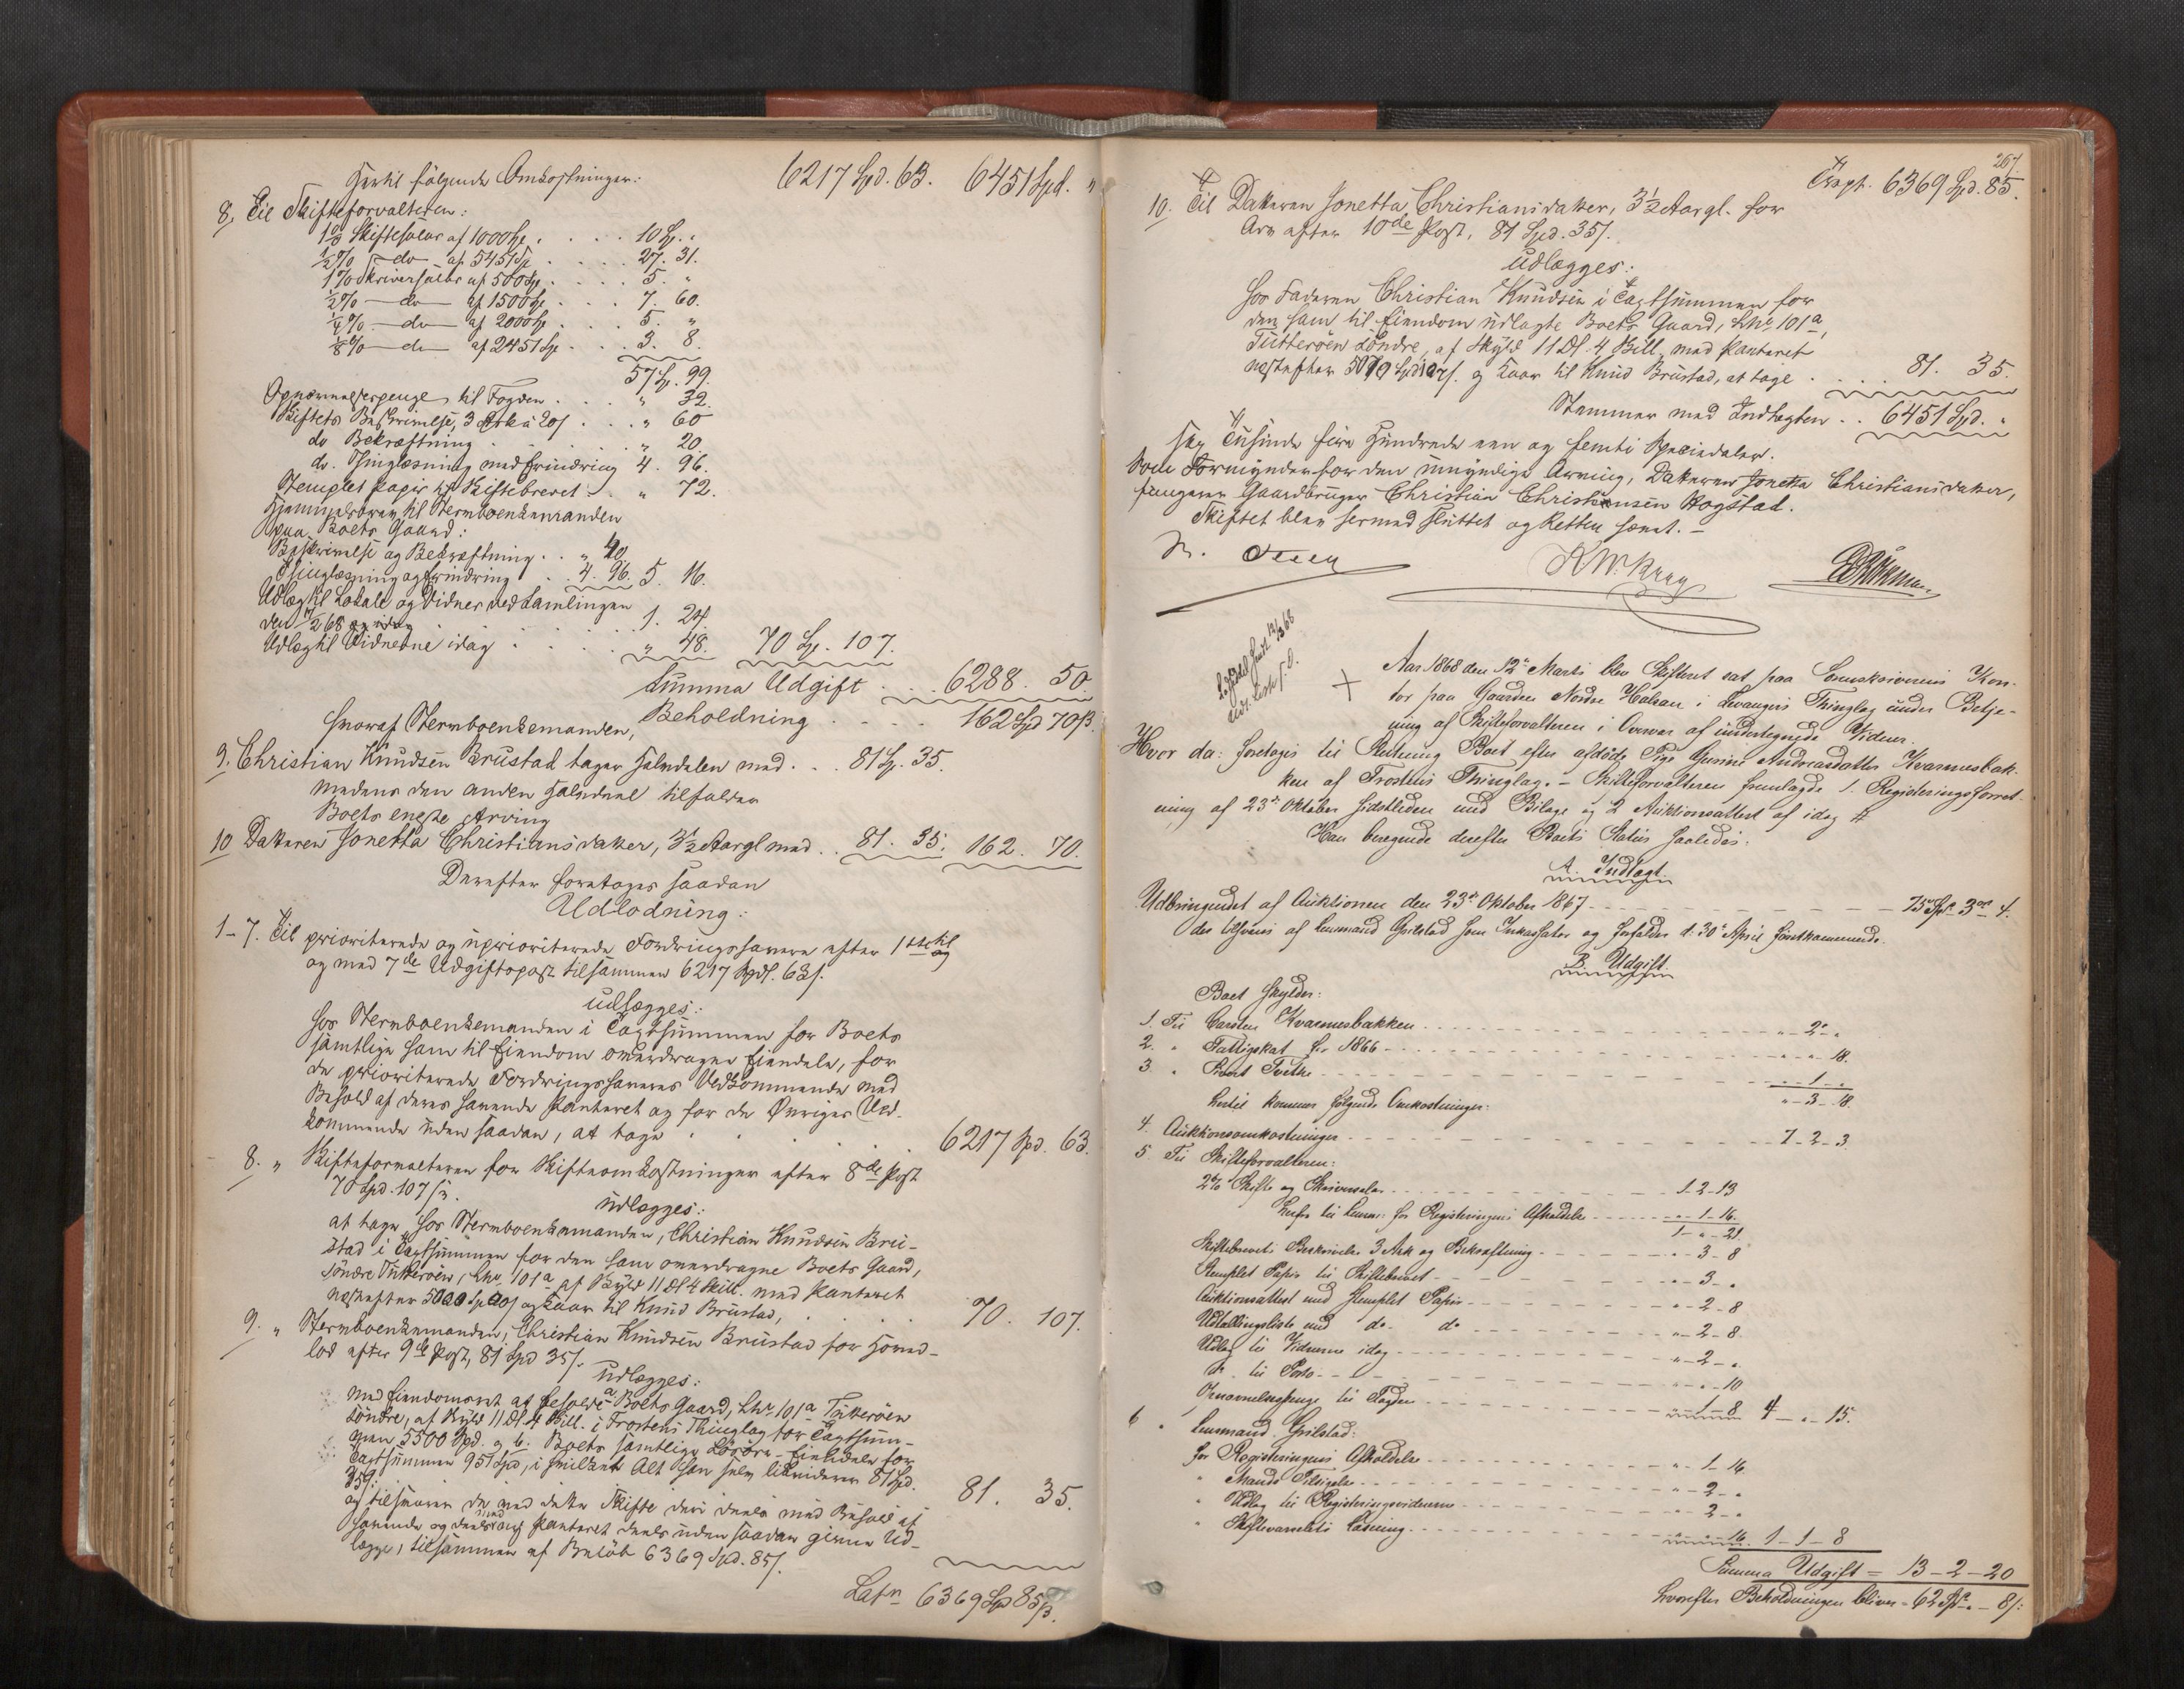 Hertil følgende Omkostninger: 6217 Spd. 63. 6451 Spd. "
8, Til Skifteforvalteren:
1% Skiftesalær af 1000 Sp. . . . 10 Sp. "
½% do af 5451 Sp . . . 27. 31.
1% Skriversalær af 500 Sp. . . . 5. "
½% do af 1500 Sp. . . . 7. 60.
¼% do af 2000 Sp. . . . 5. "
⅛% do af 2451 Sp. . . . 3. 8.
57 Sp. 99.
Opnævnelsespenge til Fogden . . . " 32.
Skiftets Beskrivelse, 3 Ark à 20 s . . . " 60
do Bekræftning . . . " 20
do. Thinglæsning med Erindring 4. 96.
Stemplet Papir til Skiftebrevet . . " 72.
Hjemmelsbrev til Sterboenkemanden
paa Boets Gaard:
Beskrivelse og Bekræftning . . " 40
Thinglæsning og Erindring . . 4. 96. 5. 16.
Udlæg til Lokale og Vidner ved Samlingen
den /2 68 og idag . . . 1. 24.
Udlæg til Vidnerne idag . . . " 48. 70 Sp. 107.
Summa Udgift . . . 6288. 50.
Beholdning . . . 162 Spd 70 ß.
Hvoraf Sterboenkemanden,
9. Christian Knudsen Brustad tager Halvdelen med . . . 81 Sp. 35.
medens den anden Halvdeel tilfalder
Boets eneste Arving
10 Datteren Jonetta Christiansdatter, 3½ Aargl med . . 81. 35. 162. 70.
Derefter foretoges saadan
Udlodning:
1-7. Til prioriterede og uprioriterede Fordringshavere efter 1ste til
og med 7de Udgiftspost tilsammen 6217 Spd. 63 s.
udlægges:
hos Sterboenkemanden i Taxtsummen for Boets
samtlige ham til Eiendom overdragne Eiendele, for
de prioriterede Fordringshaveres Vedkommende med
Behold af deres havende Panteret og for de Øvriges Ved-
kommende uden saadan, at tage . . . 6217 Spd. 63.
8. " Skifteforvalteren for Skifteomkostninger efter 8de Post
70 Spd. 107 s.
udlægges:
at tage hos Sterboenkemanden, Christian Knudsen Bru-
stad i Taxtsummen for den ham overdragne Boets Gaard,
søndre Tutterøen, Lnr. 101a af Skyld 11 Dl 4 Skill. med Panteret
næstefter og Kaar til Knud Brustad, . . . 70. 107.
9. " Sterboenkemanden, Christian Knudsen Brustad for Hoved-
lod efter 9de Post, 81 Spd 35 s.
udlægges:
med Eiendomsret at beholde a. Boets Gaard, Lnr. 101a Tutterøen
søndre, af Skyld 11 Dl 4 Skill. i Frostens Thinglag for Taxtsum-
men 5500 Spd. og b. Boets samtlige Løsøre-Eiendele for
Taxtsummen 951 Spd, i hvilket Alt han selv liqviderer 81 Spd.
35 s.
og tilsvarer de ved dette Skifte deri deels med Behold af
havende og deels med Panteret deels uden saadan givne Ud-
lægge, tilsammen af Beløb 6369 Spd. 85 s.
Latr. 6369 Spd 85 ß.
267.
Trspt. 6369 Spd. 85.
10. Til Datteren Jonetta Christiansdatter, 3½ Aargl. for
Arv efter 10de Post, 81 Spd. 35 s.
udlægges:
hos Faderen Christian Knudsen i Taxtsummen for
den ham til Eiendom udlagte Boets Gaard, Lnr. 101a,
Tutterøen søndre, af Skyld 11 Dl. 4 Skill. med Panteret
næstefter og Kaar til Knud Brustad, at tage . . . 81. 35.
Stemmer med Indtægten . . 6451 Spd. "
sex Tusinde fire Hundrede een og femti Speciedaler.
Som Formynder for den umyndige Arving, Datteren Jonetta Christiansdatter,
fungerer Gaardbruger Christian Christiansen Hogstad.
Skiftet blev hermed sluttet og Retten hævet. –
K. M. Krag
Aar 1868 den 12te Marts blev Skifteret sat paa Sorenskriverens Kon-
tor paa Gaarden Nordre Halsan i Levangers Thinglag under Betje-
ning af Skifteforvalteren i Overvær af undertegnede Vidner.
Hvor da: foretoges til Slutning Boet efter afdøde Pige Gurine Andreasdatter Kvamnesbak-
ken af Frostens Thinglag. – Skifteforvalteren fremlagde 1. Registreringsforret-
ning af 23de Oktober sidstleden med Bilage og 2 Auktionsattest af idag #
Han beregnede derefter Boets Status saaledes:
A. Indtægt.
Udbringendet af Auktionen den 23de Oktober 1867 – – – 75 Spd. 3 ort 4.
der tilsvares af Lensmand Grilstad som Inkassator og forfalder d. 30te April førstkommende.
B. Udgift.
Boet skylder:
1. Til Carsten Kvamnesbakken – – – " – 2 – "
2. " Fattigskat for 1866 – – – " – " – 18.
3. " Sivert Tvithe – – – " – 1 – "
" – 3 – 18.
hertil kommer følgende Omkostninger:
4. Auktionsomkostninger – – – 7 – 2 – 3.
5. Til Skifteforvalteren:
2% Skifte og Skriversalær – – – 1 – 2 – 13
herfra til Lensm: for Registreringens Afholdelse – – – " – 1 – 16.
1 – " – 21.
Skiftebrevets Beskrivelse 3 Ark og Bekræftning – – – " – 3 – 8
Stemplet Papir til Skiftebrevet – – – " – 3 – "
Auktionsattest med stemplet Papir – – – " – 2 – 8
Udtællingsliste med do do – – – " – 2 – 8.
Udlæg til Vidnerne idag – – – " – 2 – "
do til Porto – – – " – " – 10
Opnævnelsespenge til Fogden – – – " – 1 – 8 4 – " – 15.
6 " Lensmand Grilstad:
for Registreringens Afholdelse – – – " – 1 – 16
" Mands Tilsigelse – – – " – 2 – "
" Udlæg til Registreringsvidnerne – – – " – 2 – "
" Skiftevarselets Læsning – – – " – " – 16. 1 – 1 – 8
Summa Udgift = 13 – 2 – 20
hvorefter Beholdningen bliver = 62 Spd – " – 8 s: